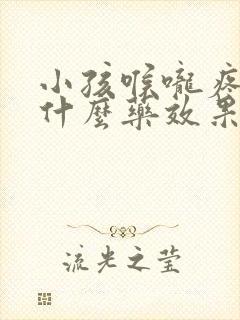 小孩喉嚨疼
什麼藥效果
流光之莹